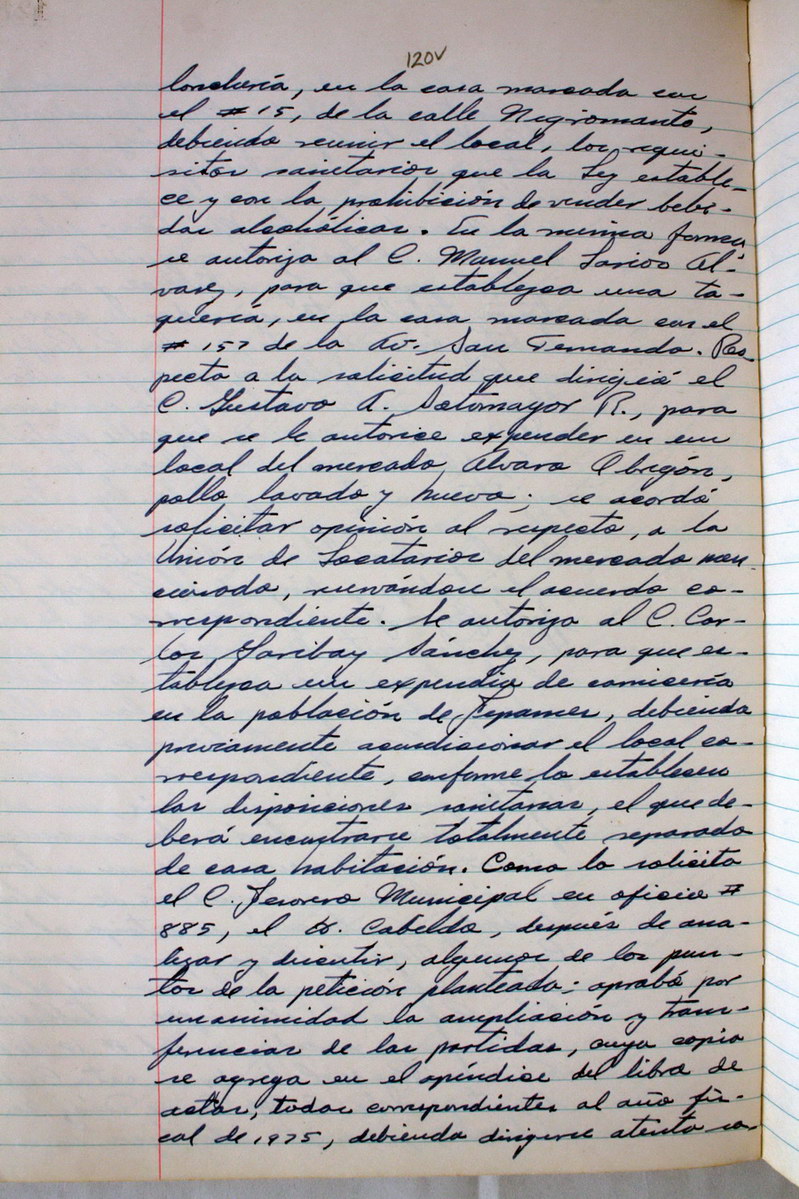 120V
lonchería, en la casa marcada con
el # 15, de la calle Nigromante,
debiendo reunir el local, los requi-
sitos sanitarios que la Ley estable-
ce y con la prohibición de vender bebi-
das alcohólicas. En la misma forma
se autoriza al C. Manuel Larios Ál-
varez, para que establezca una ta-
quería, en la casa marcada con el
# 157 de la Av. San Fernando. Res-
pecto a la solicitud que dirigió el
C. Gustavo A. Sotomayor R., para
que se le autorice expender en un
local del mercado Alvaro Obregón,
pollo lavado y huevo; se acordó
solicitar opinión al respecto, a la
Unión de Locatarios del mercado men-
cionado, reservándose el acuerdo co-
rrespondiente. Se autoriza al C. Car-
los Garibay Sánchez, para que es-
tablezca un expendio de carnicería
en la población de Tepames, debiendo
previamente acondicionar el local co-
rrespondiente, conforme lo establecen
las disposiciones sanitarias, el que de-
berá encontrarse totalmente separado
de casa habitación. Como lo solicita
el C. Tesorero Municipal en oficio #
885, el H. Cabildo, después de ana-
lizar y discutir, algunos de los pun-
tos de la petición planteada; aprobó por
unanimidad la ampliación y trans-
ferencias de las partidas, cuya copia
se agrega en el apéndice del libro de
actas, todas correspondientes al año fis-
cal de 1975, debiendo dirigirse atenta co-